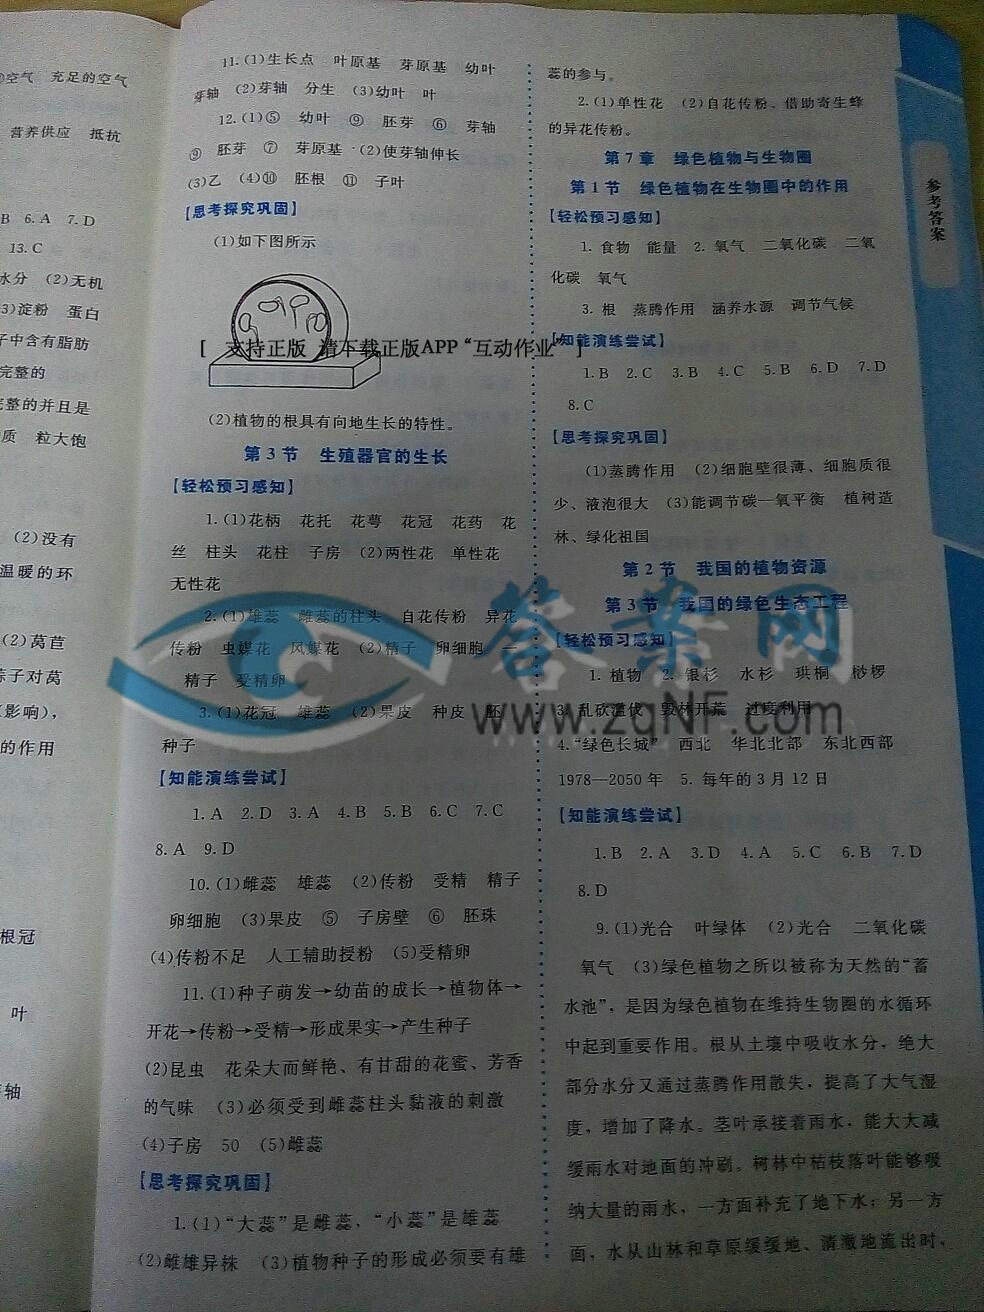 空气 充足的空气
营养供应 抵抗
B 6.A 7.D
13.C
水分 (2)无机
3)淀粉 蛋白
子中含有脂肪
完整的
完整的并且是
质 粒大饱
(2)没有
温暖的环
(2)莴苣
子对莴
影响),
的作用
根冠
叶
轴
11.(1)生长点 叶原基 芽原基 幼叶
芽轴 (2)芽轴 分生 (3)幼叶 叶
12.(1)⑤ 幼叶 ⑨ 胚芽 ⑥ 芽轴
⑨ 胚芽 ⑦ 芽原基 (2)使芽轴伸长
(3)乙 (4)⑩ 胚根 ⑪ 子叶
【思考探究巩固】
(1)如下图所示
[ 支持正版 请下载正版APP“互动作业” ]
(2)植物的根具有向地生长的特性。
第3节 生殖器官的生长
【轻松预习感知】
1.(1)花柄 花托 花萼 花冠 花药 花
丝 柱头 花柱 子房 (2)两性花 单性花
无性花
2.(1)雄蕊 雌蕊的柱头 自花传粉 异花
传粉 虫媒花 风媒花 (2)精子 卵细胞 一
精子 受精卵
3.(1)花冠 雄蕊 (2)果皮 种皮 胚
种子
【知能演练尝试】
1.A 2.D 3.A 4.B 5.B 6.C 7.C
8.A 9.D
10.(1)雌蕊 雄蕊 (2)传粉 受精 精子
卵细胞 (3)果皮 ⑤ 子房壁 ⑥ 胚珠
(4)传粉不足 人工辅助授粉 (5)受精卵
11.(1)种子萌发→幼苗的成长→植物体→
开花→传粉→受精→形成果实→产生种子
(2)昆虫 花朵大而鲜艳、有甘甜的花蜜、芳香
的气味 (3)必须受到雌蕊柱头黏液的刺激
(4)子房 50 (5)雌蕊
【思考探究巩固】
1.(1)“大蕊”是雌蕊,“小蕊”是雄蕊
(2)雌雄异株 (3)植物种子的形成必须要有雄
蕊的参与。
2.(1)单性花 (2)自花传粉、借助寄生蜂
的异花传粉。
第7章 绿色植物与生物圈
第1节 绿色植物在生物圈中的作用
【轻松预习感知】
1. 食物 能量 2. 氧气 二氧化碳 二氧
化碳 氧气
3. 根 蒸腾作用 涵养水源 调节气候
【知能演练尝试】
1.B 2.C 3.B 4.C 5.B 6.D 7.D
8.C
【思考探究巩固】
(1)蒸腾作用 (2)细胞壁很薄、细胞质很
少、液泡很大 (3)能调节碳—氧平衡 植树造
林、绿化祖国
第2节 我国的植物资源
第3节 我国的绿色生态工程
【轻松预习感知】
1. 植物 2. 银杉 水杉 珙桐 桫椤
3. 乱砍滥伐 毁林开荒 过度利用
4.“绿色长城” 西北 华北北部 东北西部
1978—2050年 5. 每年的3月12日
【知能演练尝试】
1.B 2.A 3.D 4.A 5.C 6.B 7.D
8.D
9.(1)光合 叶绿体 (2)光合 二氧化碳
氧气 (3)绿色植物之所以被称为天然的“蓄
水池”,是因为绿色植物在维持生物圈的水循环
中起到重要作用。根从土壤中吸收水分,绝大
部分水分又通过蒸腾作用散失,提高了大气湿
度,增加了降水。茎叶承接着雨水,能大大减
缓雨水对地面的冲刷。树林中枯枝落叶能够吸
纳大量的雨水,一方面补充了地下水;另一方
面,水从山林和草原缓缓地、清澈地流出时,
参考答案
答案网
www.zqNF.com